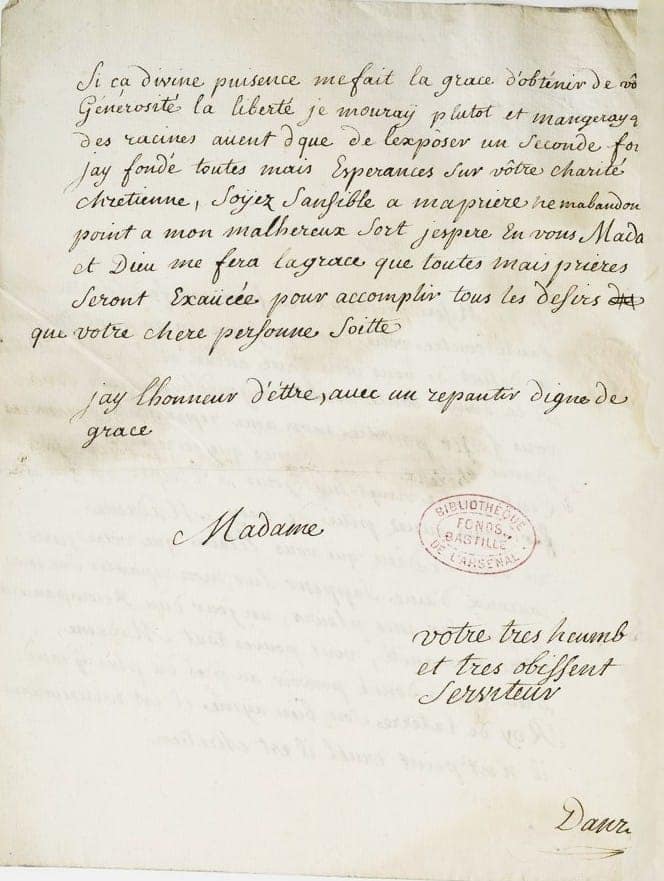 Si ça divine puisence me fait la grace d'obtenir de vô
Générosité la liberté je mouraÿ plutot et mangeraÿ q
des racines auent dque de lexpôser un Seconde foi
Jay fondé toutes mais Esperances Sur vôtre charité
chretienne, Soÿez Sansible a mapriere ne mabandon
point a mon malhereux Sort jespere En vous Mada
et Dieu me fera lagrace que toutes mais prieres
Seront Exaücée pour accomplir tous les desirs
que votre chere personne Soitte
jay lhonneur d'éttre, avec un repantir digne de
grace
Madame
BIBLIOTHÈQUE
FONDS
BASTILLE
DE L'ARSENAL
votre tres heumb
et tres obissent
Serviteur
Danr